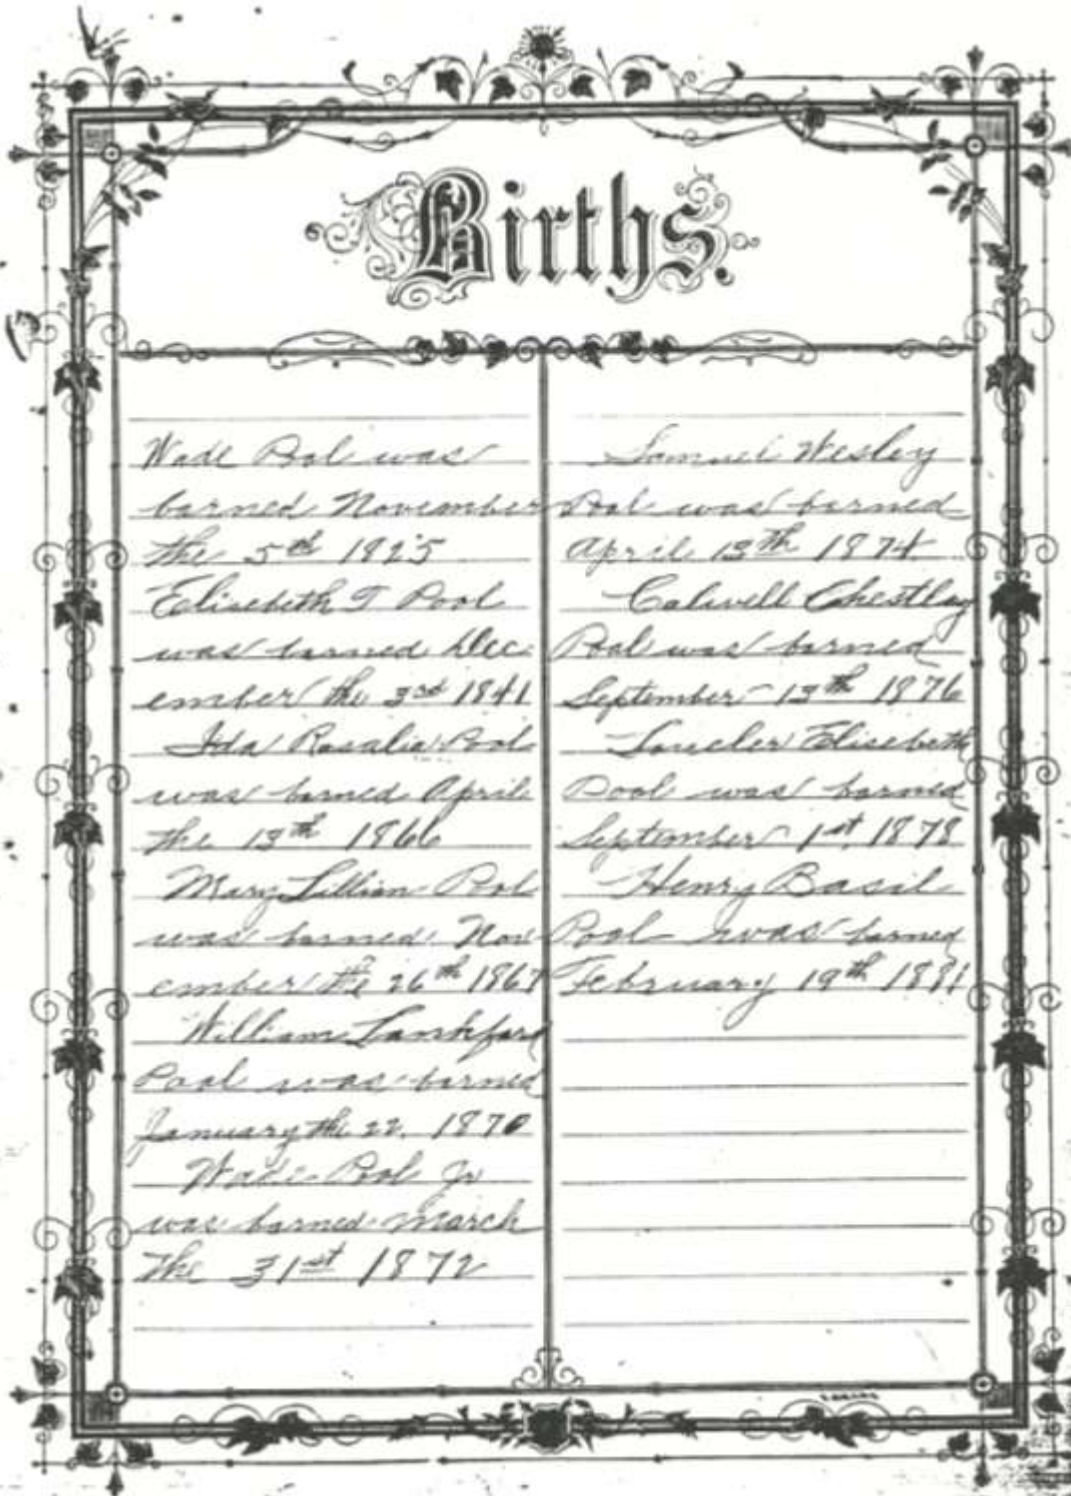 Births.
Wade Pool was
borned November
the 5th 1825
Elisebeth T Pool
was borned Dec
ember the 3rd 1841
Ida Rosalia Pool
was borned April
the 13th 1866
Mary Lillian Pool
was borned Nov
ember the 26th 1867
William Lankford
Pool was borned
January the 22, 1870
Wade Pool Jr
was borned March
the 31st 1872
Samuel Wesley
Pool was borned
April 13th 1874
Calwell Chestley
Pool was borned
September 13th 1876
Elisebeth
Pool was borned
September 1st, 1878
Henry Basil
Pool was borned
February 19th 1881